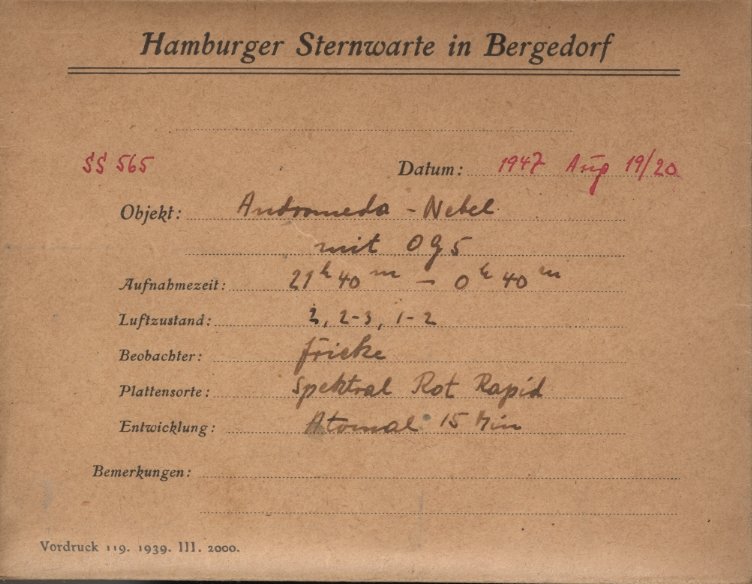 Hamburger Sternwarte in Bergedorf
SS 565 Datum: 1947 Aug 19/20
Objekt: Andromeda-Nebel
mit OG5
Aufnahmezeit: 21h 40m – 0h 40m
Luftzustand: 2, 2-3, 1-2
Beobachter: Fricke
Plattensorte: Spektral Rot Rapid
Entwicklung: Atomal 15 Min
Bemerkungen:
Vordruck 119. 1939. III. 2000.